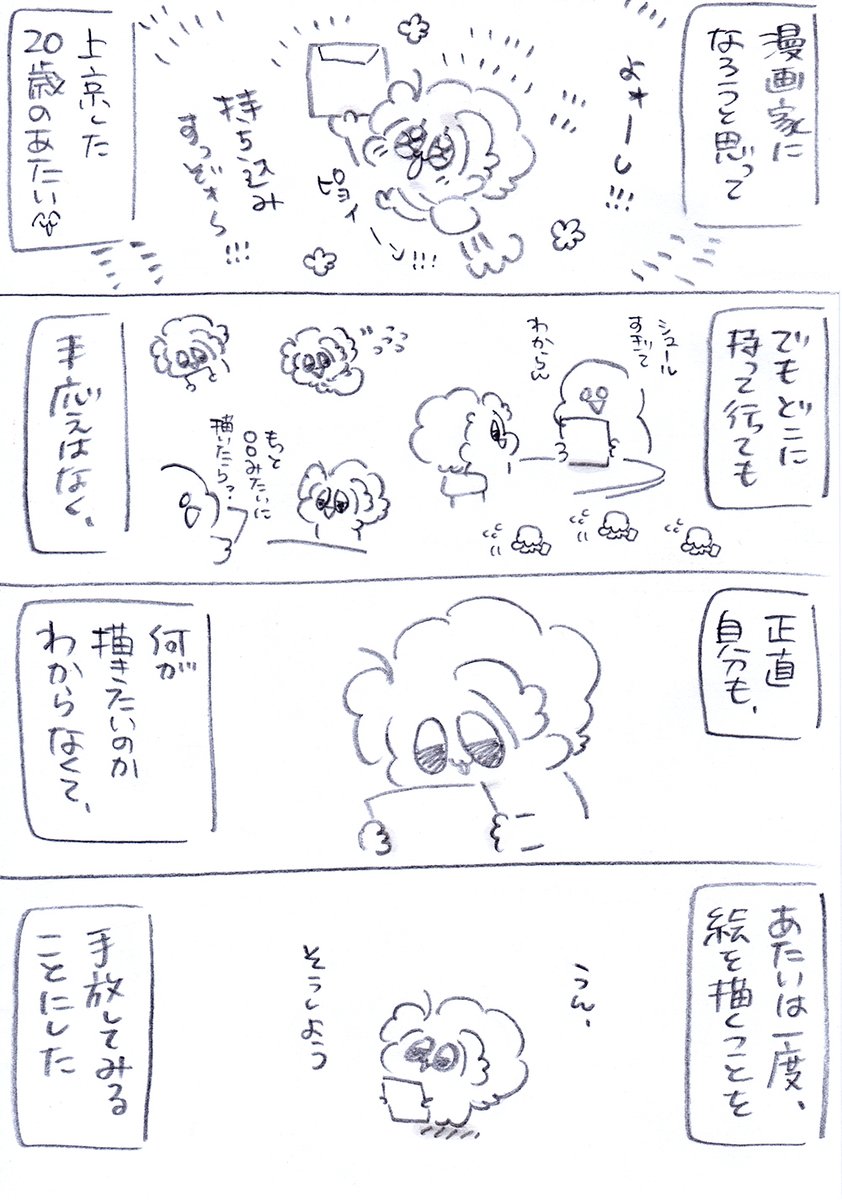 漫画家に
なろうと思って
よォーし!!!
ピョイーッ!!!
持ち込み
すっぞオら!!!
上京した
20歳のあたい
でもどこに
持って行っても
シュール
すぎて
わからん
もっと
〇〇みたいに
描いたら?
手応えはなく、
正直
自分も、
何が
描きたいのか
わからなくて、
あたいは一度、
絵を描くことを
うん、
そうしよう
手放してみる
ことにした